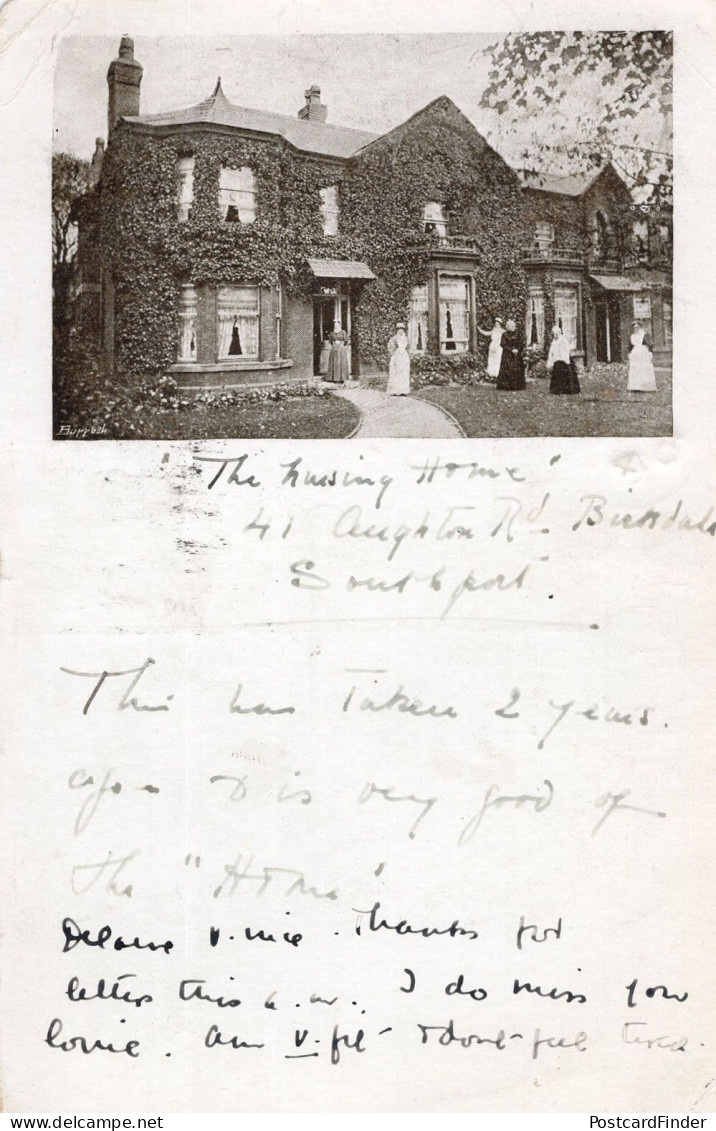 "The Nursing Home"
41 Aughton Rd Birkdale
Southport.
This has taken 2 years.
ago & is very good of
the "Home"
v. nice. Thanks for
letters this a.m. I do miss you
Am v. fit & don't feel tired.
PostcardFinder